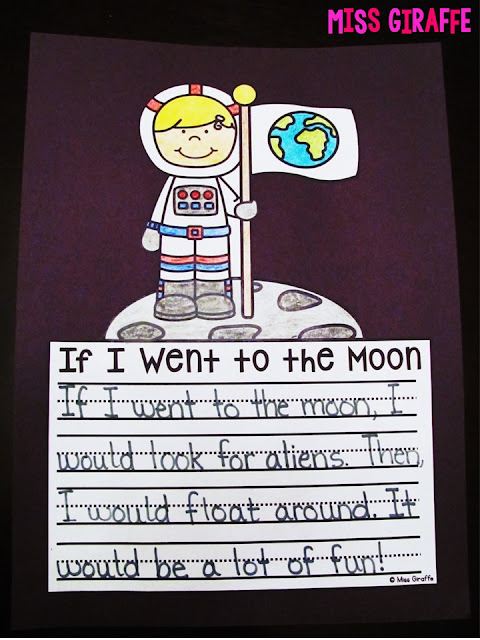 MISS GIRAFFE
If I Went to the Moon
If I went to the moon, I
would look for aliens. Then,
I would float around. It
would be a lot of fun!
© Miss Giraffe